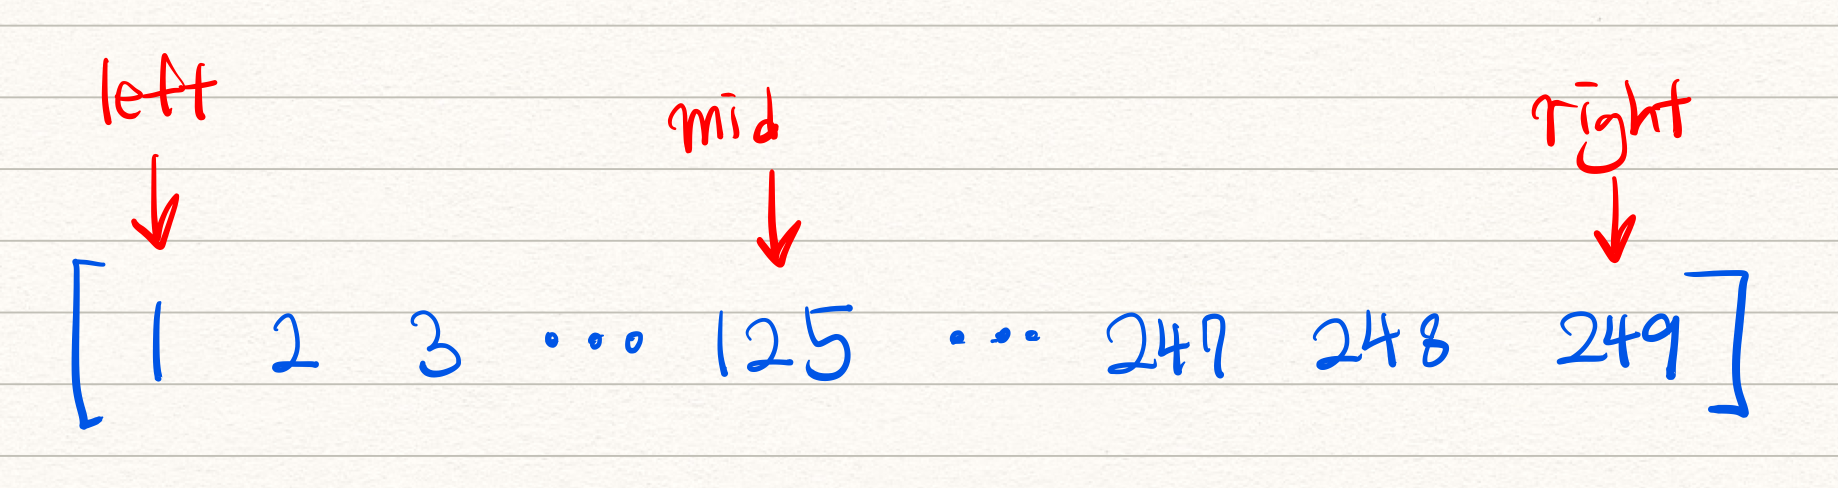 left mid right
[ 1 2 3 ... 125 ... 247 248 249 ]